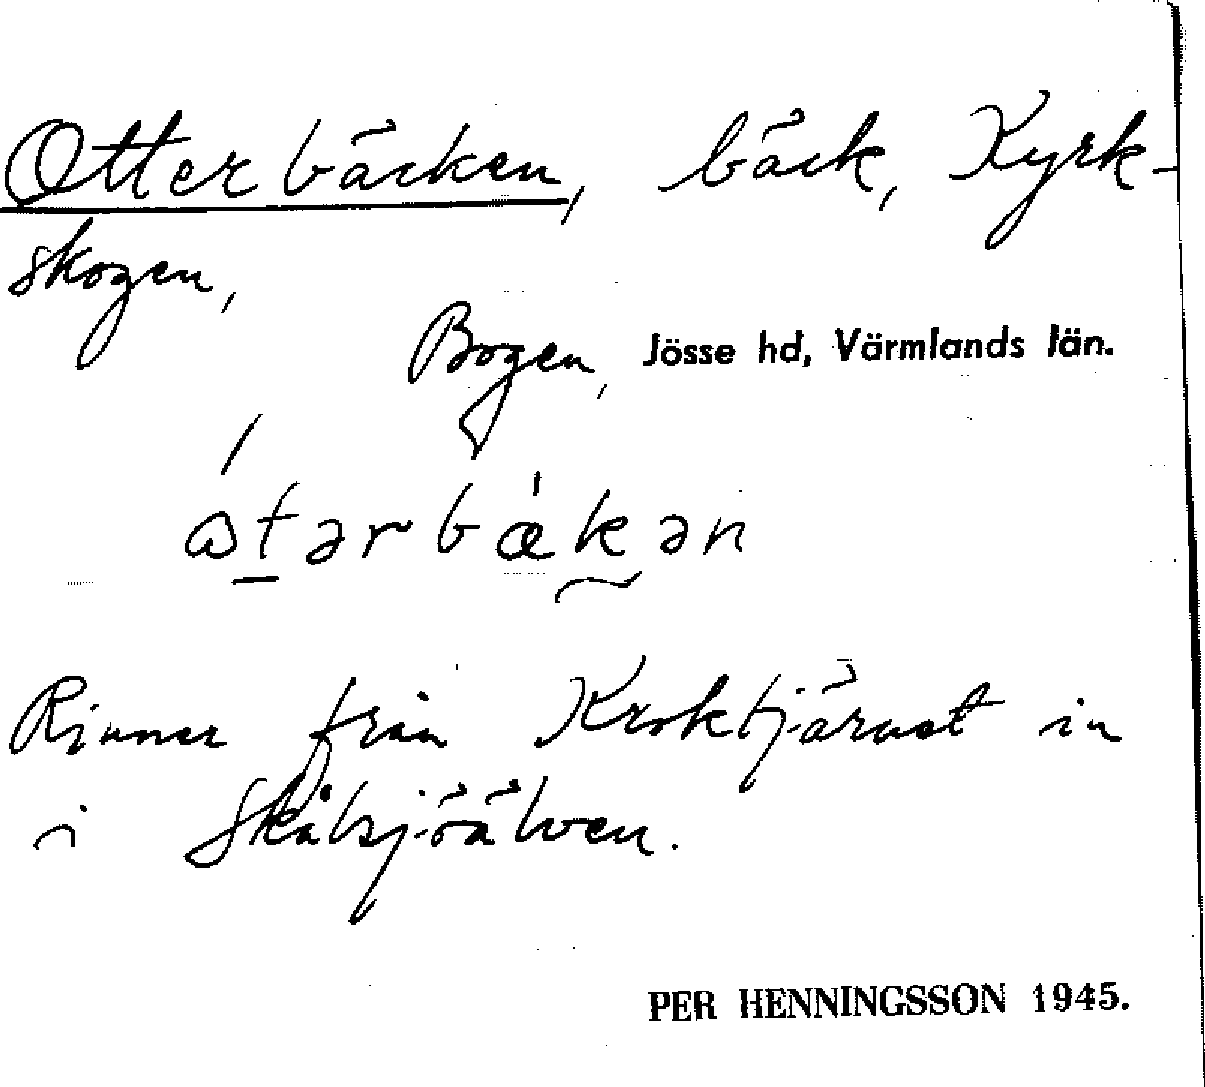 Otterbäcken, bäck, Kyrk-
skogen,
Bogen, Jösse hd, Värmlands län.
åtərbækən
Rinner från Kroktjärnet in
i Skålsjöälven.
PER HENNINGSSON 1945.